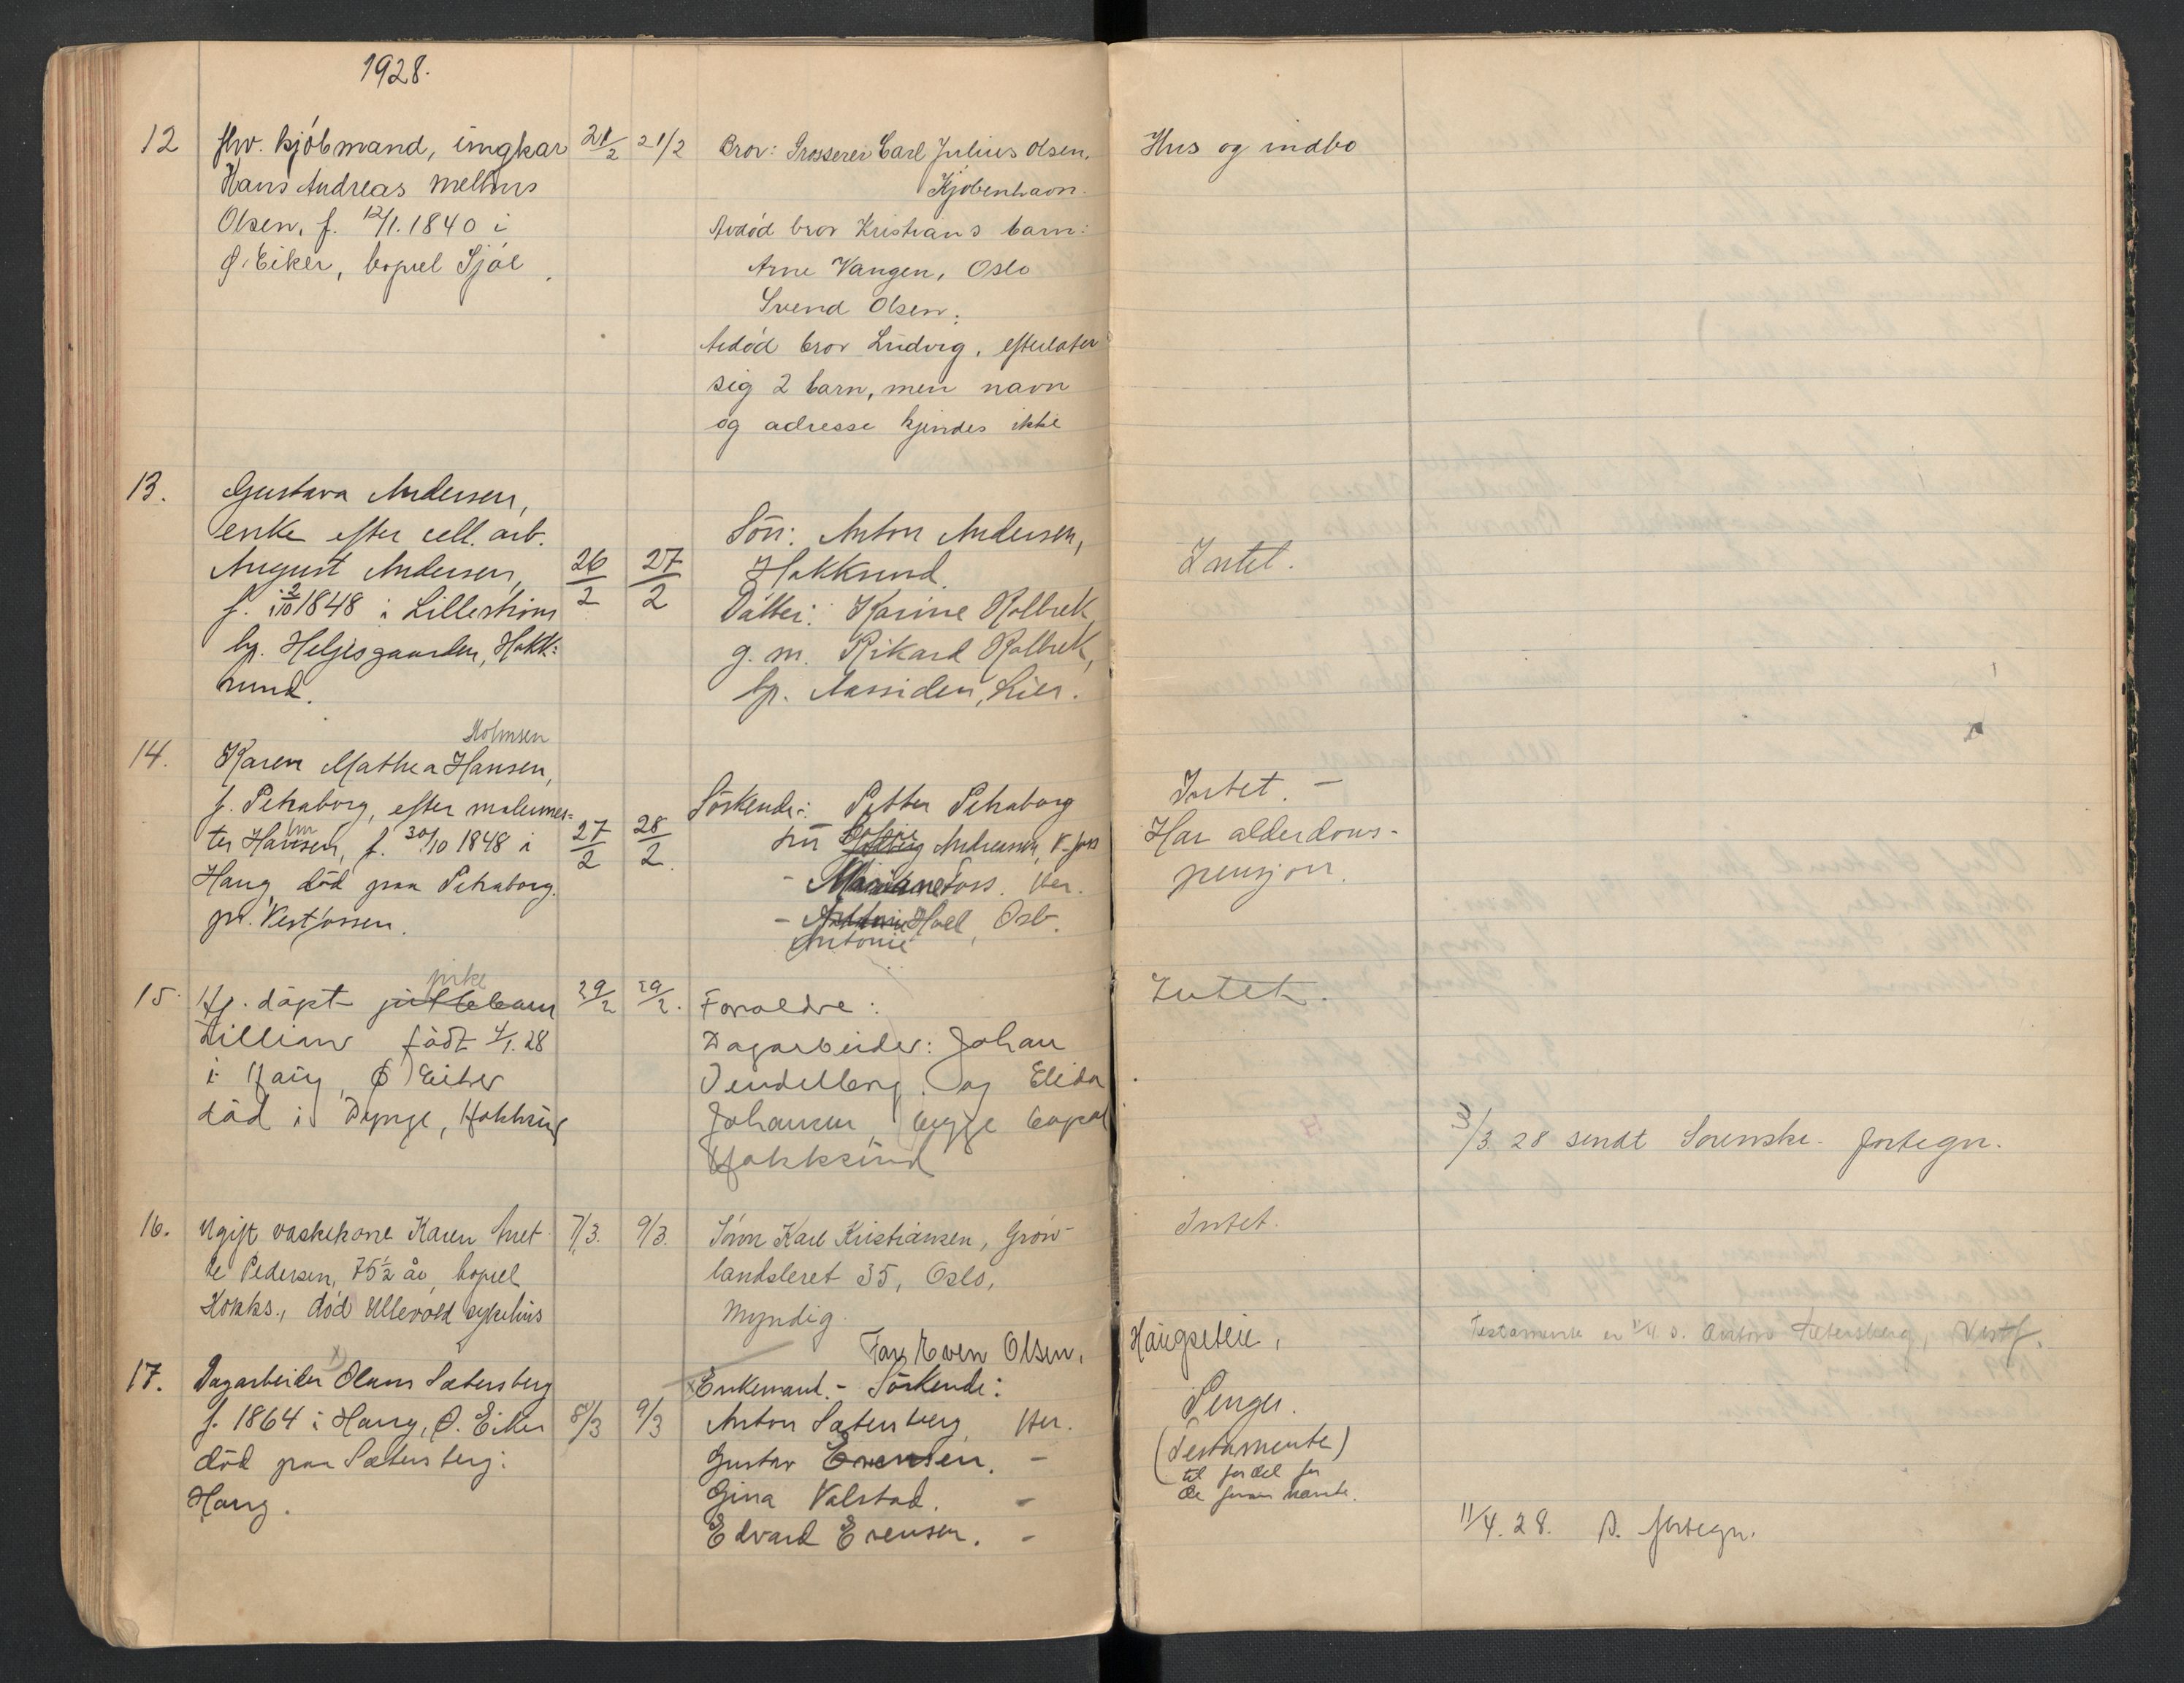 1928.
12
fhv. kjøbmand, ungkar
Hans Andreas Mellius
Olsen, f. 12/1. 1840 i
Ø. Eiker, bopæl Sjøl
21/2
21/2
Bror: Grosserer Carl Julius Olsen,
Kjøbenhavn.
Avdød bror Kristians barn:
Arne Vangen, Oslo
Svend Olsen.
Avdød bror Ludvig, efterlater
sig 2 barn, men navn
og adresse kjendes ikke
Hus og indbo
13.
Gustava Andersen,
enke efter cell. arb.
August Andersen,
f. 2/10 1848 i Lillestrøm
bp. Helgesgaarden, Hokk-
sund.
26/2
27/2
Sön: Anton Andersen,
Hokksund.
Datter: Karine Kolbrek,
g. m. Rikard Kolbrek,
bp. Aassiden, Lier.
Intet.
14.
Holmsen
Karen Mathea Hansen,
f. Petraborg, efter malermes-
ter Hansen, f. 30/10 1848 i
Haug, død paa Petraborg.
pr. Vestfossen.
27/2
28/2.
Söskende: Petter Petraborg
fru Andreassen, V-foss
- Mariane Foss. Her.
- Hoel, Oslo.
Antonie
Intet. -
Har alderdoms-
pensjon.
15.
pike
Hj. døpt pikebarn
Lillian født 4/1. 28
i Haug, Ø Eiker
død i Dynge, Hokksund
29/2
29/2.
Foraldre:
Dagarbeider: Johan
Tendelberg og Elida
Johansen, begge bopæl
Hokksund
Intet.
3/3 28 sendt Sorenskr. fortegn.
16.
Ugift vaskekone Karen Anet-
te Pedersen, 75½ år, bopæl
Hokks., død Ullevold sykehus
7/3.
9/3.
Sønn Karl Kristiansen, Grøn-
landsleret 35, Oslo,
Myndig.
Intet.
17.
Dagarbeider Olaus Sætersberg
f. 1864 i Haug, Ø. Eiker
død paa Sætersberg:
Haug.
8/3
9/3
Far Even Olsen,
Enkemand. - Söskende:
Anton Sætersberg, Her.
Gustav Evensen. -
Gina Valstad. -
Edvard Evensen. -
Haugseteie,
Penger.
(Testamente)
til fordel for
de foran nævnte.
Testamente er 11/4. s. Anton Sætersberg, Vestf.
11/4. 28. S. fortegn.